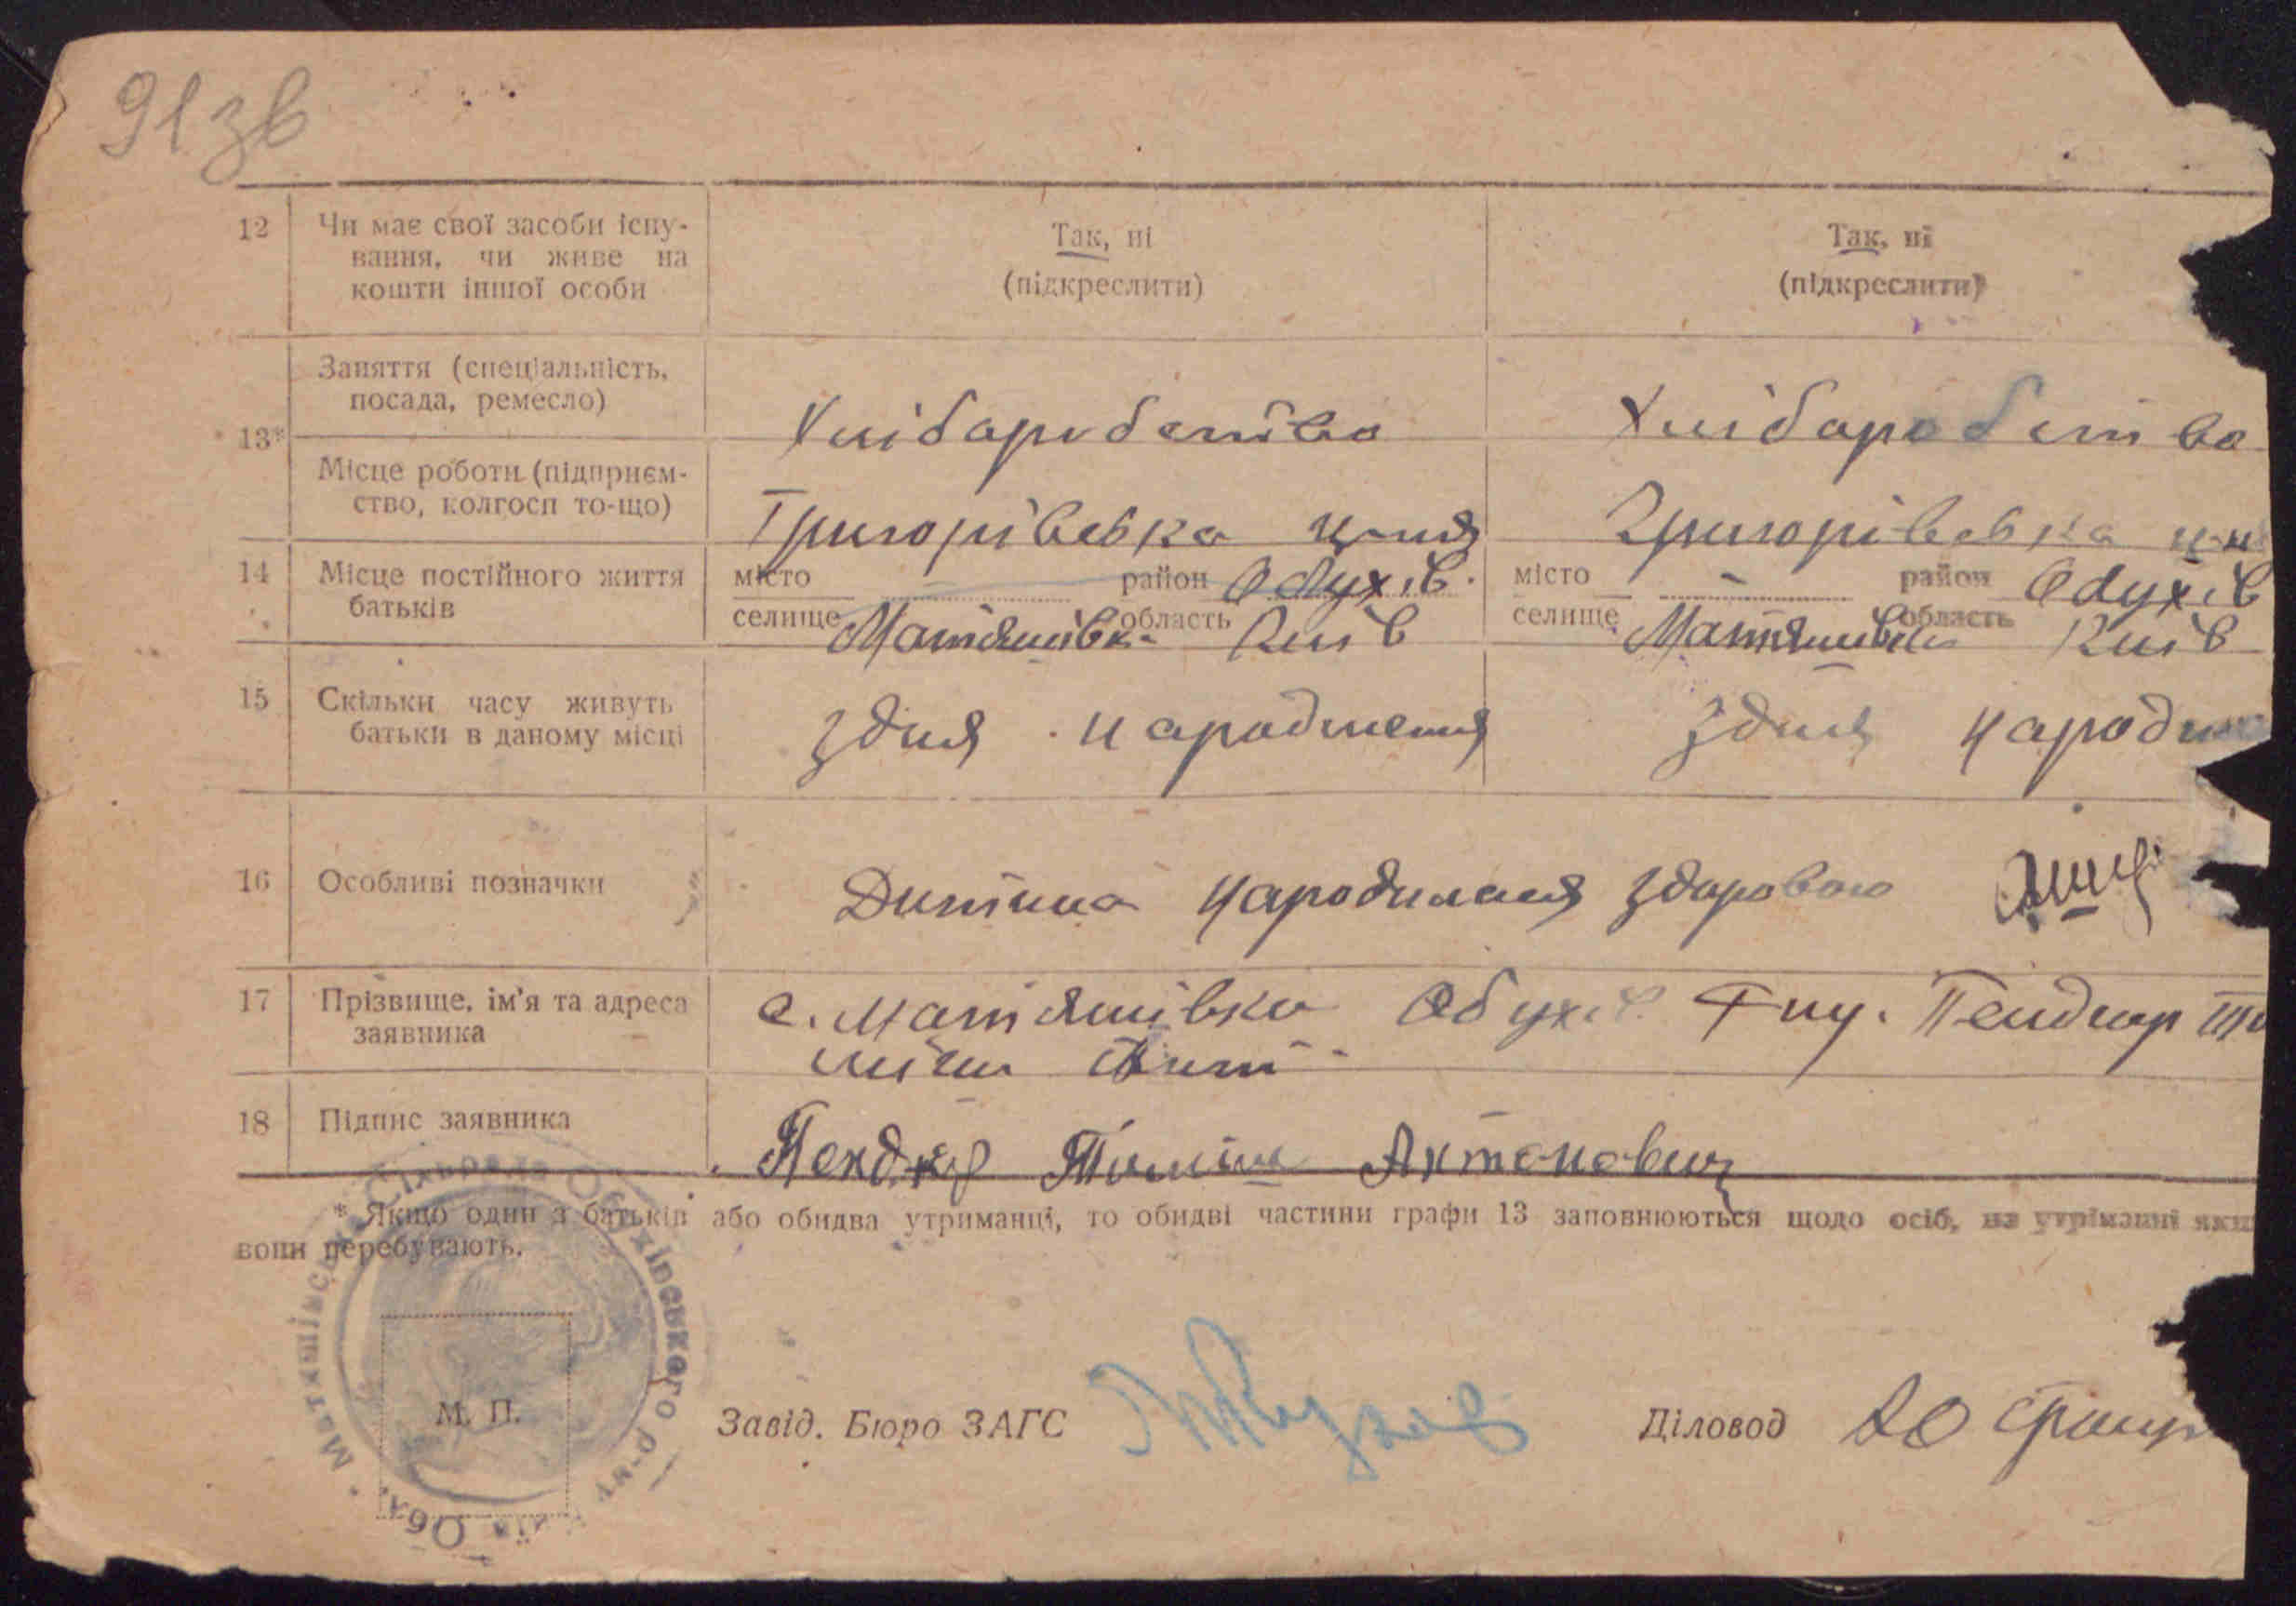 91зв
12 Чи має свої засоби існу-
вання, чи живе на
кошти іншої особи
Так, ні
(підкреслити)
Так, ні
(підкреслити)
13*
Заняття (спеціальність,
посада, ремесло)
Хлібаробство
Хлібаробство
Місце роботи (підприєм-
ство, колгосп то-що)
Григорівська
Григорівська
14 Місце постійного життя
батьків
місто район Обухів
селище Матяшівка область Київ
місто район Обухів
селище Матяшівка область Київ
15 Скільки часу живуть
батьки в даному місці
здня народження
здня народж
16 Особливі позначки
Дитина народилася здоровою
17 Прізвище, ім'я та адреса
заявника
с. Матяшівка Обухів
18 Підпис заявника
Антонович
* Якщо один з батьків або обидва утриманці, то обидві частини графи 13 заповнюються щодо осіб, на утріманні яки
вони перебувають.
Матяшівська Сільрада Обухівського р-ну Обл.
М. П.
Завід. Бюро ЗАГС
Діловод